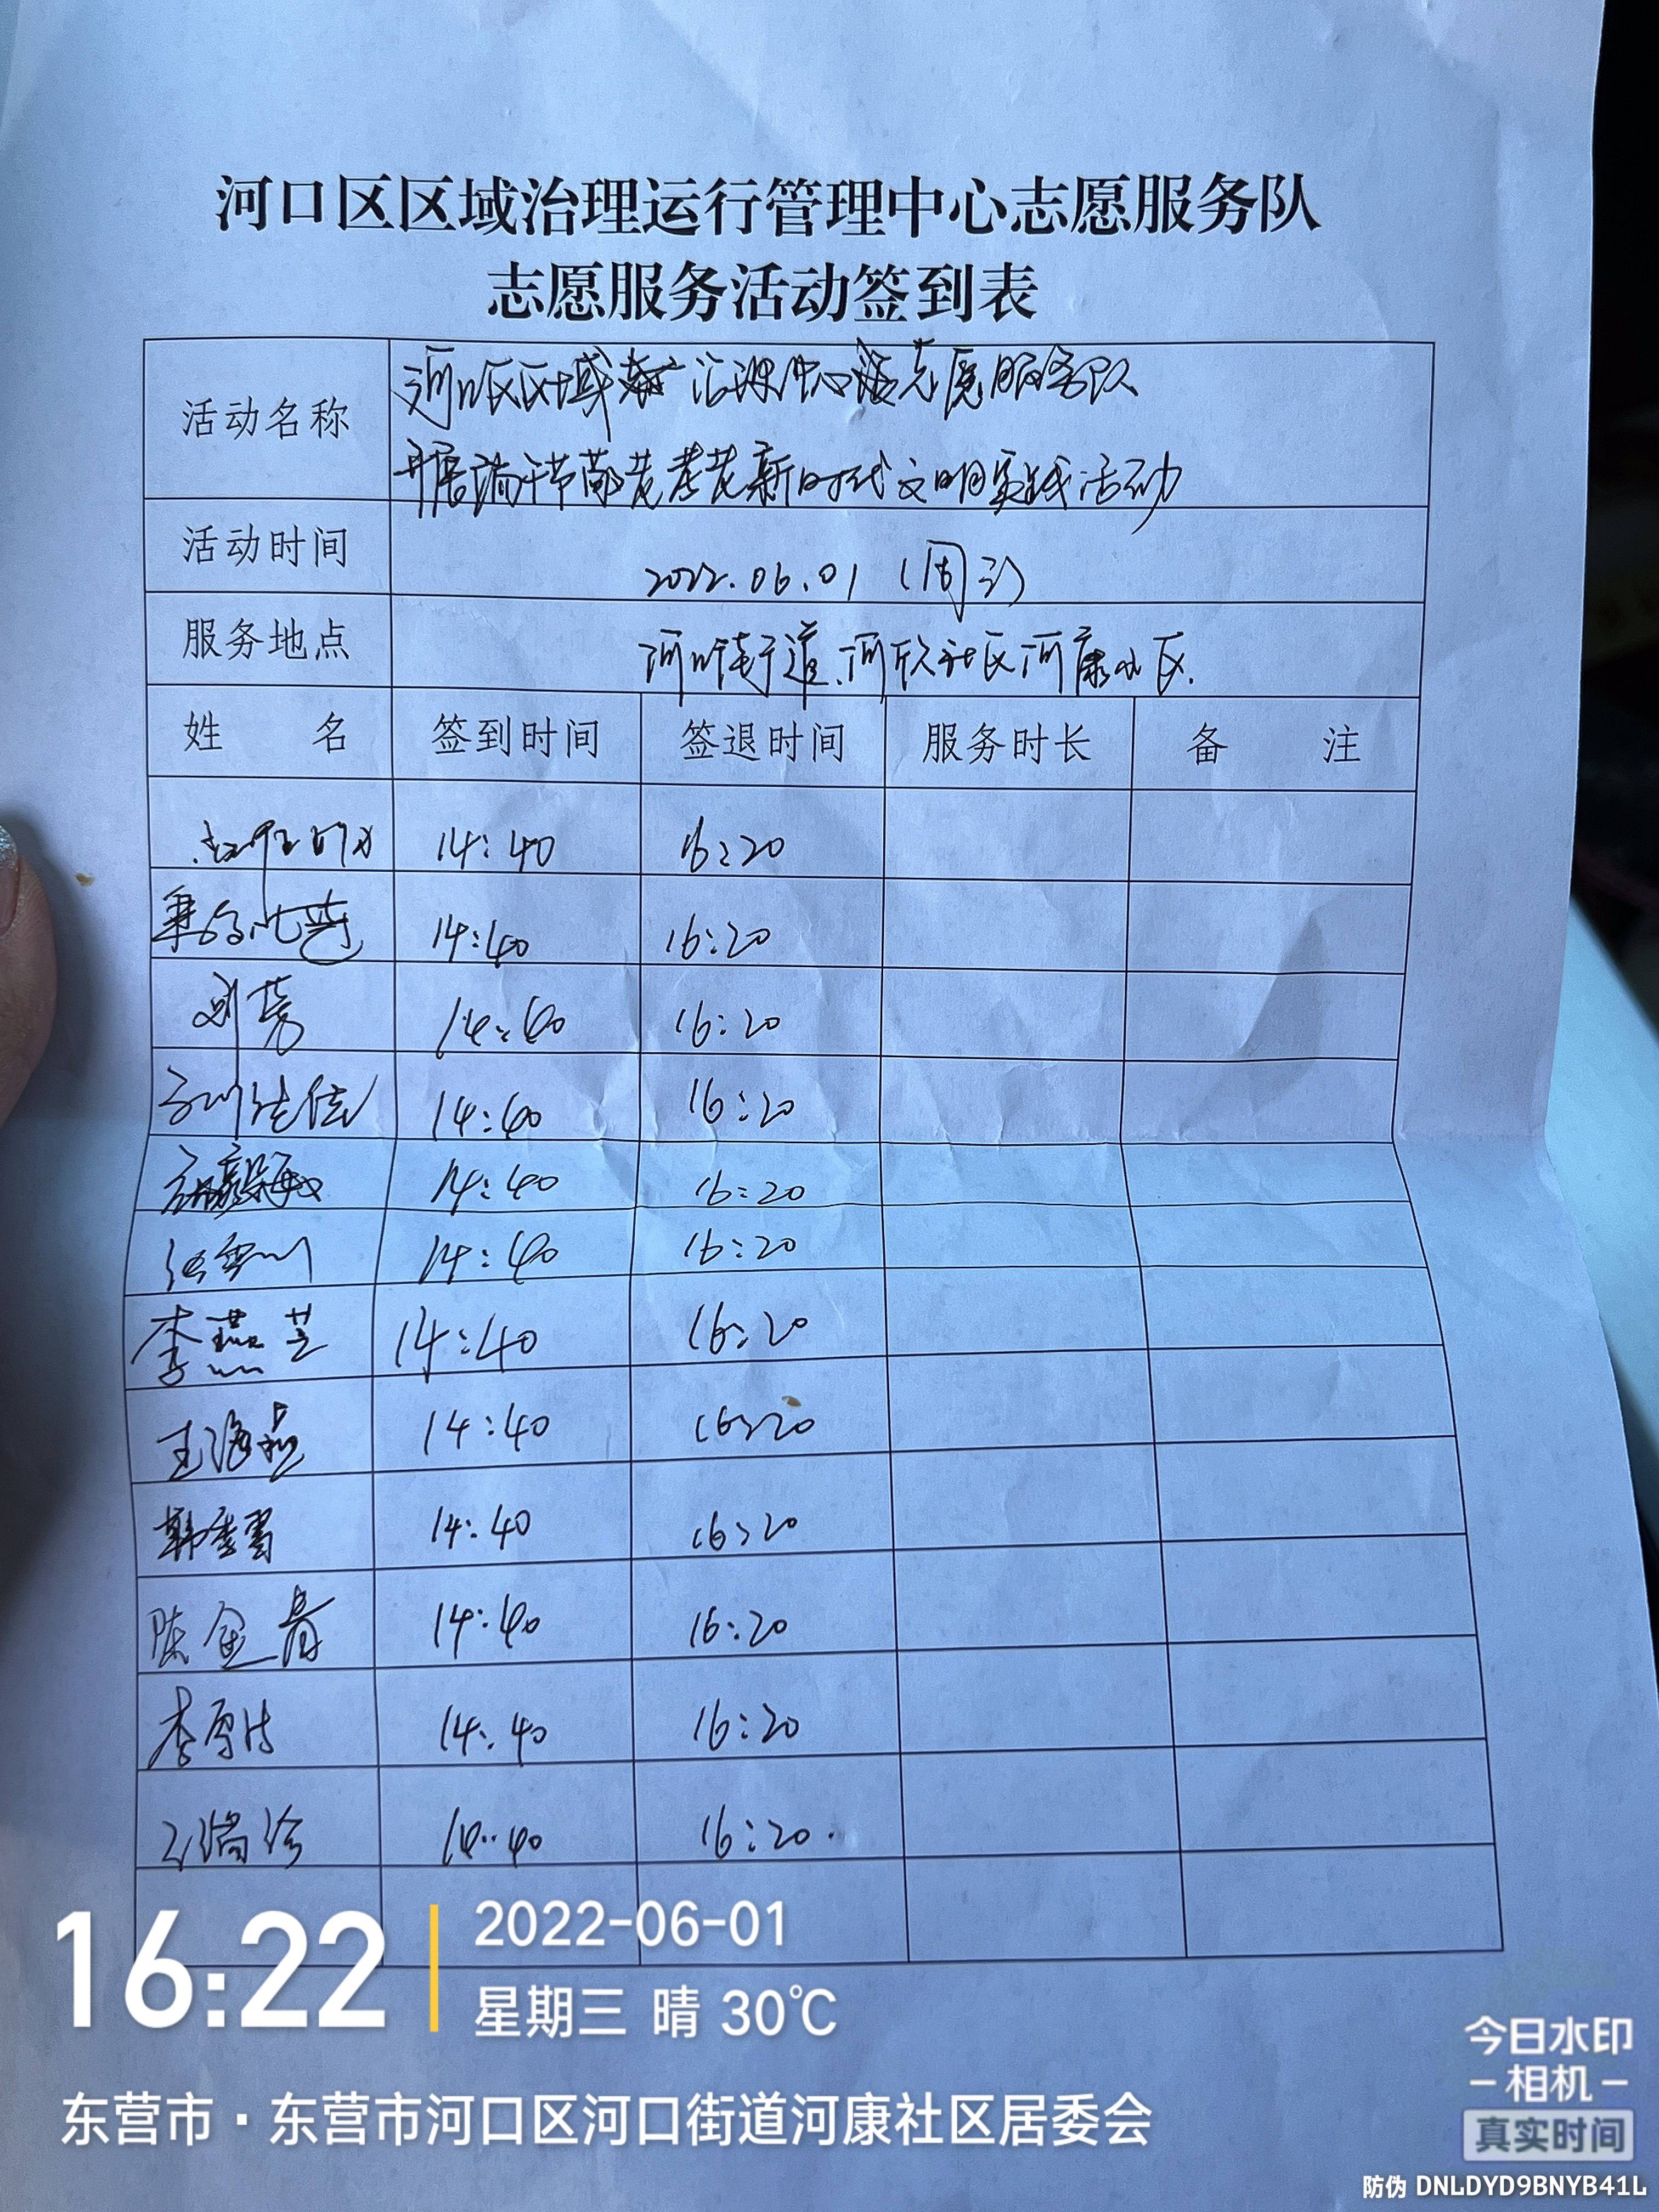 河口区区域治理运行管理中心志愿服务队
志愿服务活动签到表
活动名称
河口区区域 治理中心 志愿服务队
开展端午节敬老孝老新时代文明实践活动
活动时间 2022.06.01（周三）
服务地点 河口街道.河欣社区河康小区.
姓 名 签到时间 签退时间 服务时长 备 注
14:40 16:20
14:40 16:20
刘芳 14:40 16:20
14:40 16:20
14:40 16:20
14:40 16:20
李燕芝 14:40 16:20
王海燕 14:40 16:20
韩雪 14:40 16:20
陈金春 14:40 16:20
李雪洁 14:40 16:20
14:40 16:20.
16:22
2022-06-01
星期三 晴 30℃
东营市·东营市河口区河口街道河康社区居委会
今日水印
相机
真实时间
防伪 DNLDYD9BNYB41L